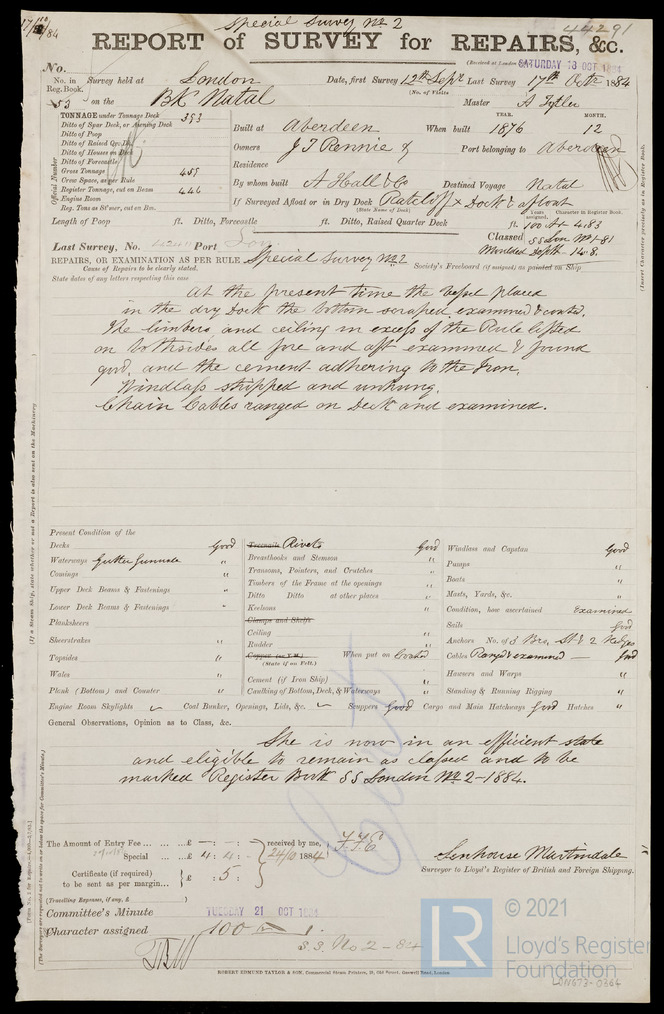 17/10/84
Special Survey No. 2
44291
REPORT of SURVEY for REPAIRS, &c.
No.
(Received at London SATURDAY 18 OCT 1884
No. in Reg. Book. Survey held at London Date, first Survey 12th Septr Last Survey 17th Octr 1884
(No. of Visits
53 on the Bk Natal Master A Tytler
TONNAGE under Tonnage Deck 393
Ditto of Spar Deck, or Awning Deck
Ditto of Poop
Ditto of Raised Qr. Dk.
Ditto of Houses on Deck
Ditto of Forecastle
Gross Tonnage 459
Crew Space, as per Rule
Register Tonnage, cut on Beam 446
Engine Room
Reg. Tons as St'mer, cut on Bm.
Official Number
YEAR. MONTH.
Built at Aberdeen When built 1876 12
Owners J T Rennie & Port belonging to Aberdeen
Residence
By whom built A Hall & Co Destined Voyage Natal
If Surveyed Afloat or in Dry Dock Ratcliff x Dock & afloat
(State Name of Dock)
Years assigned. Character in Register Book.
Length of Poop ft. Ditto, Forecastle ft. Ditto, Raised Quarter Deck ft. 100 A1 4.83
Classed SS Lon No 1-81
Last Survey, No. Port Lon
Moulded Depth 14.8.
REPAIRS, OR EXAMINATION AS PER RULE Special Survey No 2 Society's Freeboard (if assigned) as painted on Ship
Cause of Repairs to be clearly stated.
State dates of any letters respecting this case
At the present time the vessel placed
in the dry Dock the bottom scraped examined & coated.
The limbers and ceiling in excess of the Rule lifted
on bothsides all fore and aft examined & found
good, and the cement adhering to the Iron.
Windlass stripped and unhung.
Chain Cables ranged on Deck and examined.
Present Condition of the
Decks Good
Waterways Gutter Gunwale "
Comings "
Upper Deck Beams & Fastenings "
Lower Deck Beams & Fastenings "
Planksheers
Sheerstrakes "
Topsides "
Wales "
Plank (Bottom) and Counter "
Treenails Rivets Good
Breasthooks and Stemson "
Transoms, Pointers, and Crutches "
Timbers of the Frame at the openings "
Ditto Ditto at other places "
Keelsons "
Clamps and Shelfs
Ceiling "
Rudder "
Copper (or Y.M.) When put on Coated
(State if on Felt.)
Cement (if Iron Ship) "
Caulking of Bottom, Deck, & Waterways "
Windlass and Capstan Good
Pumps "
Boats "
Masts, Yards, &c. "
Condition, how ascertained Examined
Sails Good
Anchors No. of 3 Brs, St & 2 Kedges
Cables Ranged & examined — Good
Hawsers and Warps "
Standing & Running Rigging "
Engine Room Skylights Coal Bunker, Openings, Lids, &c. Scuppers Good Cargo and Main Hatchways Good Hatches "
General Observations, Opinion as to Class, &c.
She is now in an efficient state
and eligible to remain as classed and to be
marked Register Book SS London No 2-1884.
The Amount of Entry Fee ... £ —:—:— received by me,
Special ... £ 4: 4: - 24/10 1884
Certificate (if required) to be sent as per margin... £ :5:
(Travelling Expenses, if any, £ )
Senhouse Martindale
Surveyor to Lloyd's Register of British and Foreign Shipping.
Committee's Minute TUESDAY 21 OCT 1884
Character assigned 100 A 1.
S.S. No 2 - 84
ROBERT EDMUND TAYLOR & SON, Commercial Steam Printers, 19, Old Street, Goswell Road, London
(If a Steam Ship, state whether or not a Report is also sent on the Machinery
(Insert Character precisely as in Register Book.
(The Surveyors are requested not to write on or below the space for Committee's Minute.)
LR
© 2021
Lloyd's Register
Foundation
LON673-0364